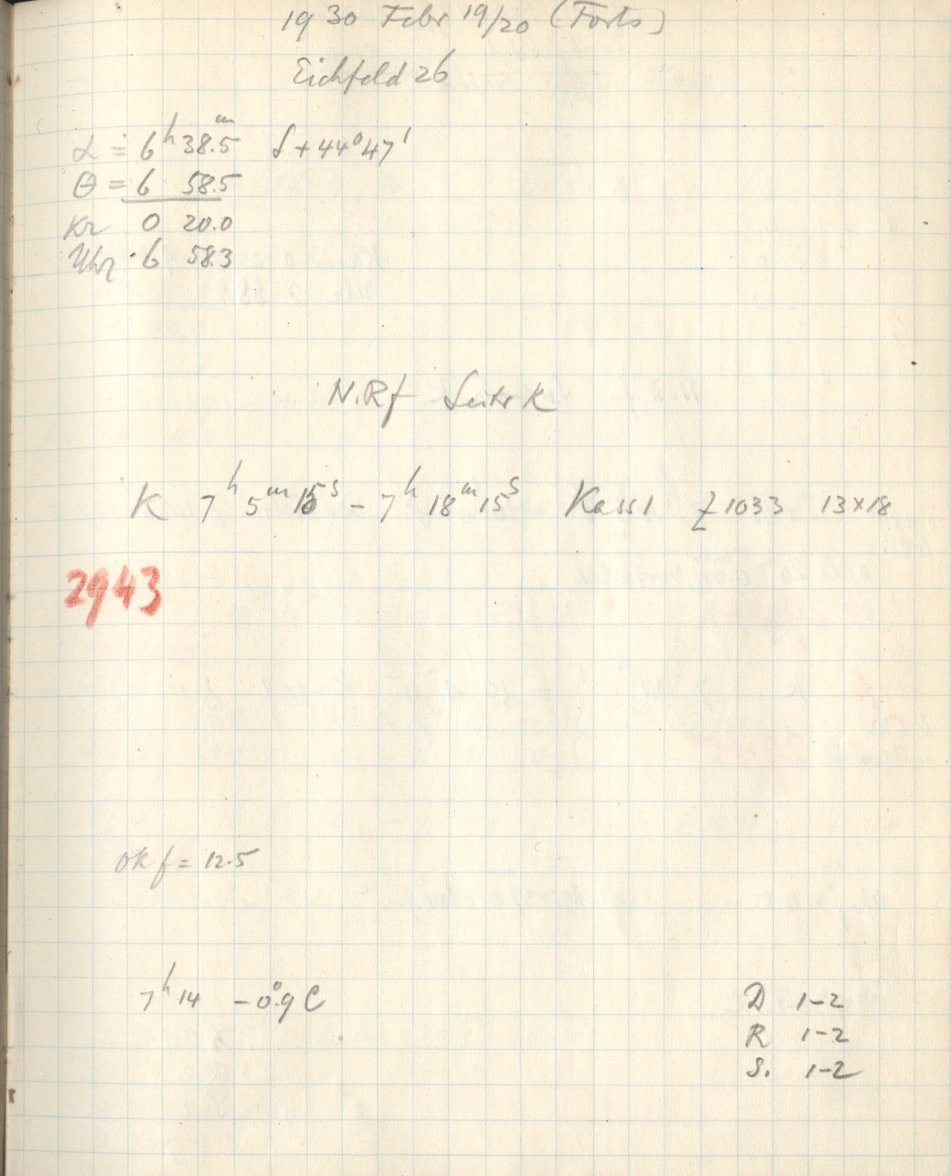 1930 Febr 19/20 (Forts)
Eichfeld 26
α = 6h 38.5m δ + 44°47'
θ = 6 58.5
Kr 0 20.0
Uhr 6 58.3
N.Rf Seite K
K 7h 5m 15s - 7h 18m 15s Kass 1 Z 1033 13×18
2943
OK f = 12.5
7h 14 -0°.9 C
D 1-2
R 1-2
S. 1-2